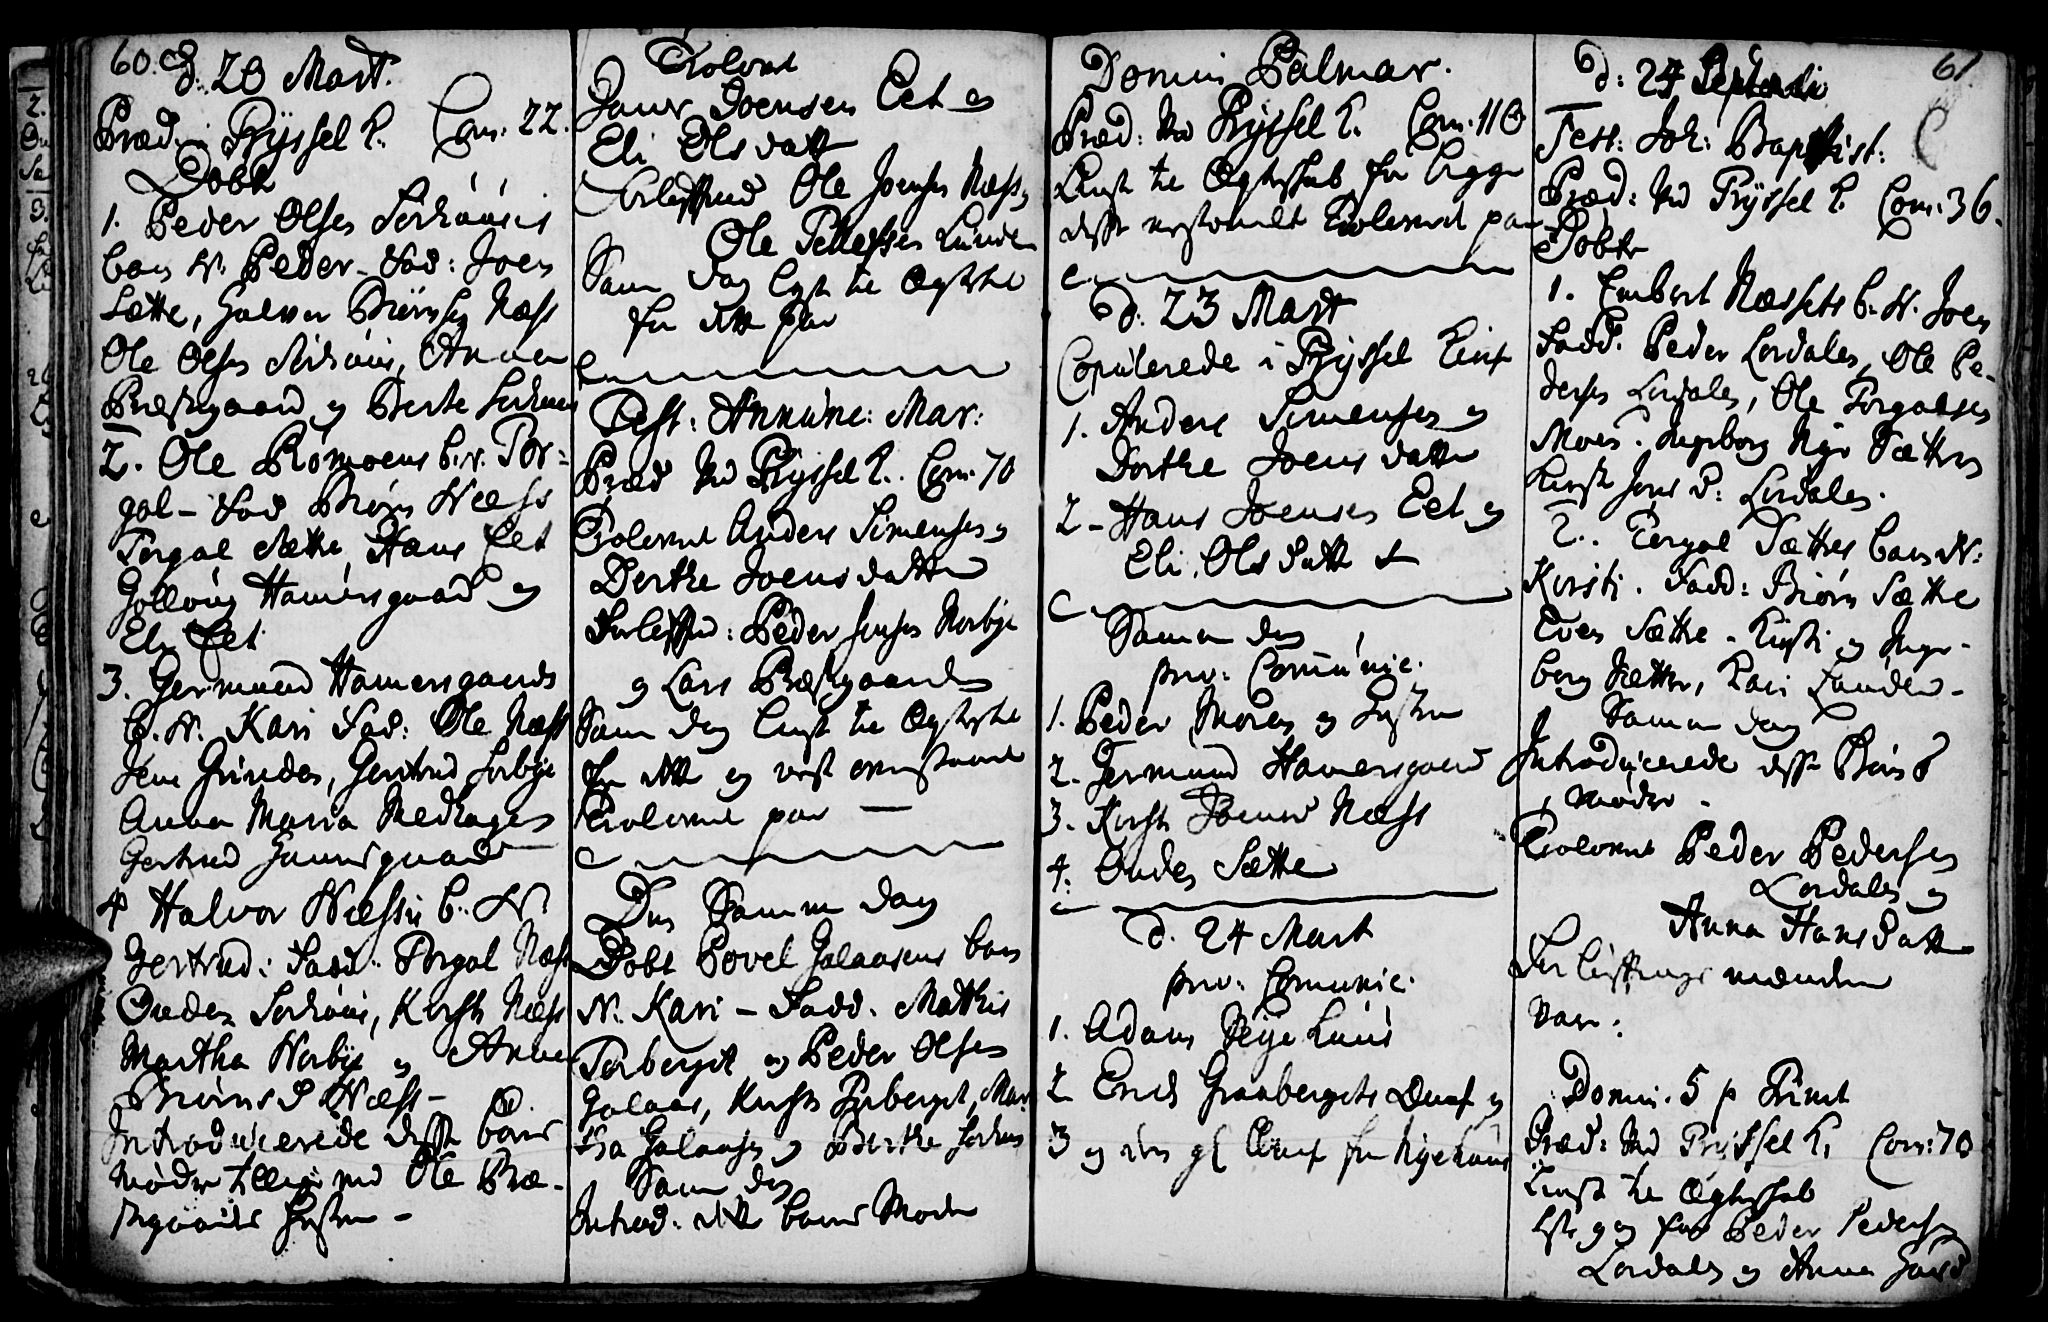 60.
d: 20 Mart.
Præd. i Tryssel K. Com. 22.
Døbt
1. Peder Olsen Sørhuusis
barn N. Peder - Fad: Joen
Sætte, Halvor Biørnsen Næss
Ole Olsen Sørhuus, Anna
Præstgaard og Berte Sørhuus
2. Ole Rømoens b. N. Tor=
gal - Fad Biørn Næss
Torgal Sætte, Hans Eet
Gollaug Hamersgaard og
Eli Eet
3. Germund Hamersgaards
b. N. Kari Fad: Ole Næss
Jens Grinder, Gertrud Norbye
Anna Maria Nedhagen
Gertrud Hamersgaard
4 Halvor Næssis b. N.
Gertrud: Fadd: Torgal Næss
Ouden Sørhuus, Kirsti Næss
Martha Norbye og Anne
Biørns D Næss -
Introducerede disse børns
mødre tillige med Ole Præ-
stgaards Hustru -
Trolovet
Hans Joensen Eet og
Eli Olsdatter
Forløftend Ole Joensen Næss
Ole Tellefsen Lunden
Samme dag lyst til Ægteskab
for dette par
Fest: Annunc: Mar:
Præd ved Tryssel K. Com. 70
Trolovet Anders Simensen og
Dorthe Joensdatter
Forløftend: Peder Jensen Norbye
og Lars Præstgaarden
Samme dag lyst til Ægteskab
for dette og næst ovenstaaende
Trolovede par —
Den Samme dag
Døbt Povel Galaasens barn
N. Kari - Fadd. Mathis
Torberget og Peder Olsen
Galaas, Kirsti Torberget, Mar
tha Galaasen og Berthe Sørhuus
Samme dag
Introd: dette barns Moder
Domin Palmar.
Præd: ved Tryssel K. Com. 110
Lyst til Ægteskab for begge
disse næstomeldte Trolovede par
d. 23 Mart
Copulerede i Tryssel Kirke
1. Anders Simensen og
Dorthe Joens datter
2 - Hans Joensen Eet og
Eli Ols datter
Samme dag
priv: Comunic.
1. Peder Moren og Hustru
2. Germund Hamersgaard
3. Kirsti Joens Næss
4. Ouden Sætte
d. 24 Mart
priv: Comunic.
1. Adam Nyehuus
2 Erich Graabergets
3 og den gl fra Nyehuus
61
d: 24
Fest: Joh: Baptist:
Præd: ved Tryssel K. Com. 36.
Døbte
1. Embret Næssets b. N. Joen
Fadd. Peder Lørdalen, Ole Pe-
dersen Lørdalen, Ole Torgalsen
Moen. Ingeborg Nye Sætter
Kirsti Jens D: Lørdalen.
2. Torgal Sættes barn N:
Kirsti. Fadd: Biørn Sætte
Even Sætte - Kirsti og Inge-
borg Sætter, Kari Lunden -
Samme dag
Introducerede disse Børns
mødre -
Trolovet Peder Pedersen
Lørdalen og
Anna Hansdatter
Forløftnings mændene
var:
Domin. 5 p Trinit
Præd: ved Tryssel K. Com: 70
Lyst til Ægteskab
for Peder Pedersen
Lørdalen og Anna Hansd